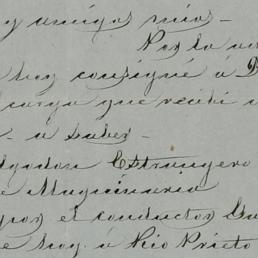 y amigos mios _
Por la
hoy consigné á D
carga que recibi
_ á saber _
lgodon Estrangero
e Maquinaria
por el conductor Gu
e hoy á Rio Prieto